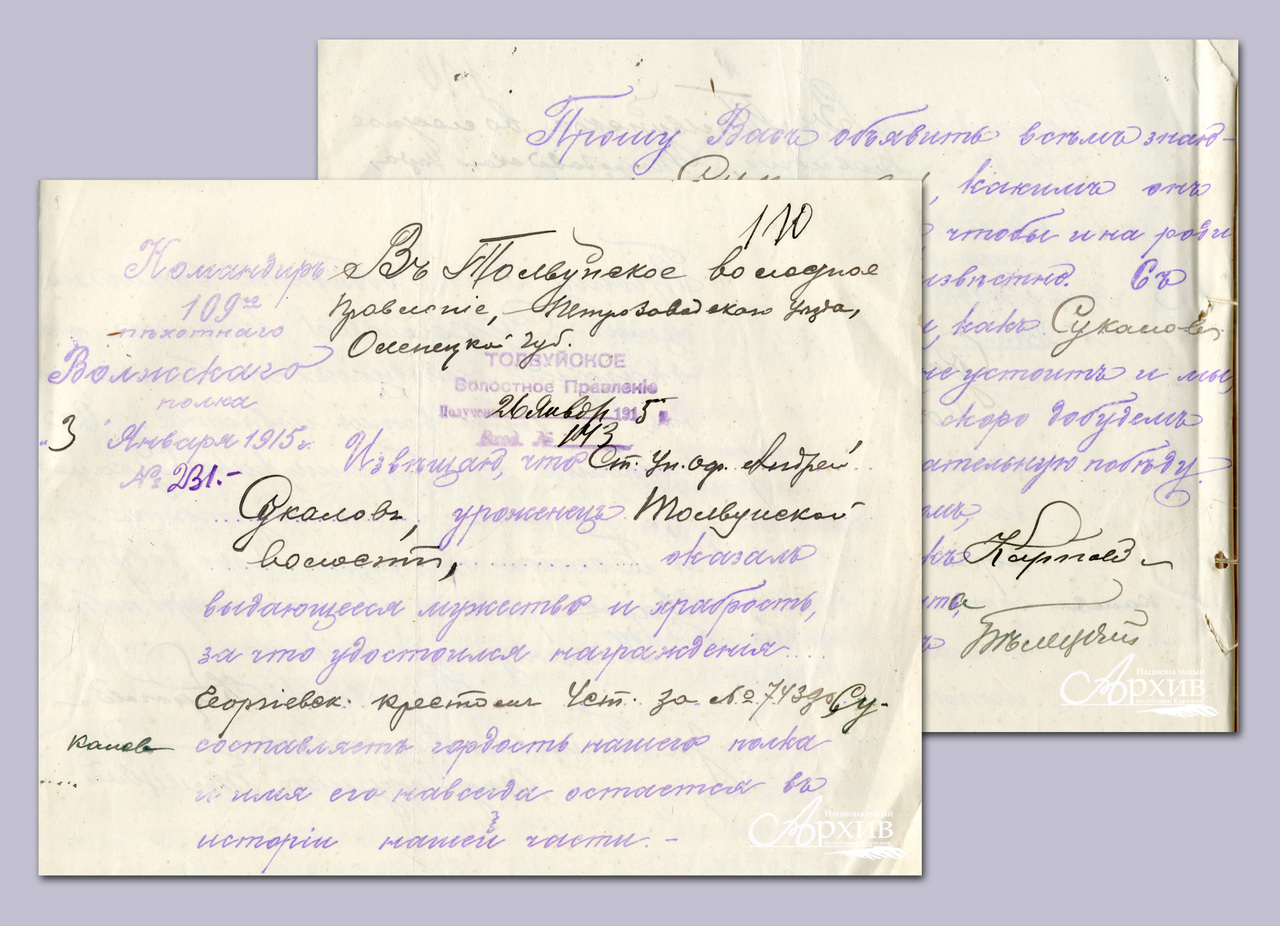 110
Командиръ
109го
пѣхотнаго
Волжскаго
полка
"3" Января 1915 г.
№ 231.-
Въ Толвуйское волостное
Правленіе, Петрозаводскаго уѣзда,
Олонецкой губ.
ТОЛВУЙСКОЕ
Волостное Правленіе
Получено 26 Январ 1915 г.
Вход. № 143
Извѣщаю, что Ст. Ун. Оф. Андрей
Сукаловъ, уроженецъ Толвуйской
волости, оказалъ
выдающееся мужество и храбрость,
за что удостоился награжденія
Георгіевск. крестомъ 4 ст. за № 74390, Су-
каловъ составляетъ гордость нашего полка
и имя его навсегда остается въ
исторіи нашей части. -
Прошу Васъ объявить всѣмъ знаю-
, какимъ онъ
чтобы и на роди
извѣстно. Съ
, какъ Сукаловъ,
не устоитъ и мы,
скоро добудемъ
ательную побѣду.
омъ,
Національный
Архив
Національный
Архив